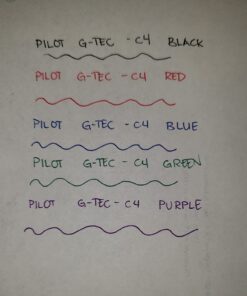 PILOT G-TEC - C4 BLACK
PILOT G-TEC - C4 RED
PILOT G-TEC - C4 BLUE
PILOT G-TEC - C4 GREEN
PILOT G-TEC - C4 PURPLE